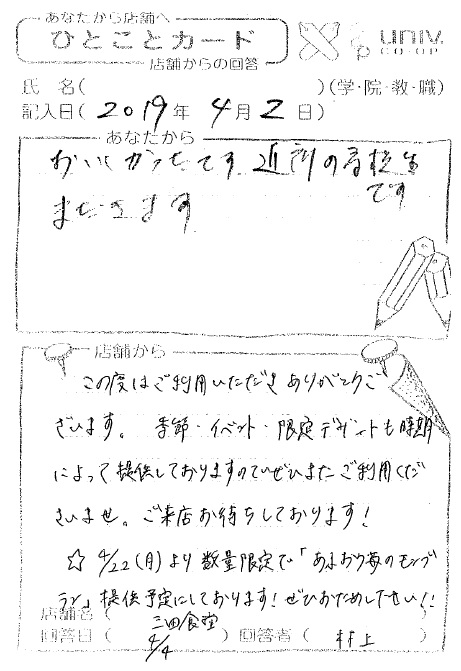 あなたから店舗へ
ひとことカード
店舗からの回答
univ.
CO-OP
氏 名( )(学・院・教・職)
記入日( 2019 年 4 月 2 日)
あなたから
おいしかったです 近所の高校生
です
またきます
店舗から
この度はご利用いただきありがとうご
ざいます。季節・イベント・限定デザートも時期
によって提供しておりますのでぜひまたご利用くだ
さいませ。ご来店お待ちしております!
☆ 4/22(月)より数量限定で「あまおう苺のモンブ
ラン」提供予定にしております!ぜひおためし下さい!!
店舗名( 三田食堂
回答日( 4/4 )回答者( 村上 )